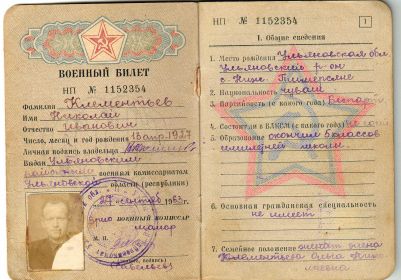 ВОЕННЫЙ БИЛЕТ
НП № 1152354
Фамилия Клементьев
Имя Николай
Отчество Иванович
Число, месяц и год рождения 1927
Личная подпись владельца
Выдан Ульяновским
районным военным комиссариатом
Ульяновской области (республики)
1963 г.
ВОЕННЫЙ КОМИССАР
майор
М. П.
НП № 1152354
1
I. Общие сведения
1. Место рождения Ульяновская обл.
Ульяновский р-он
с. Ниж. Тимерсяне
2. Национальность чуваш
3. Партийность (с какого года)
4. Состоит в ВЛКСМ (с какого года)
5. Образование окончил 6 классов
школы
6. Основная гражданская специальность
не имеет
7. Семейное положение женат, жена
Клементьева Ольга